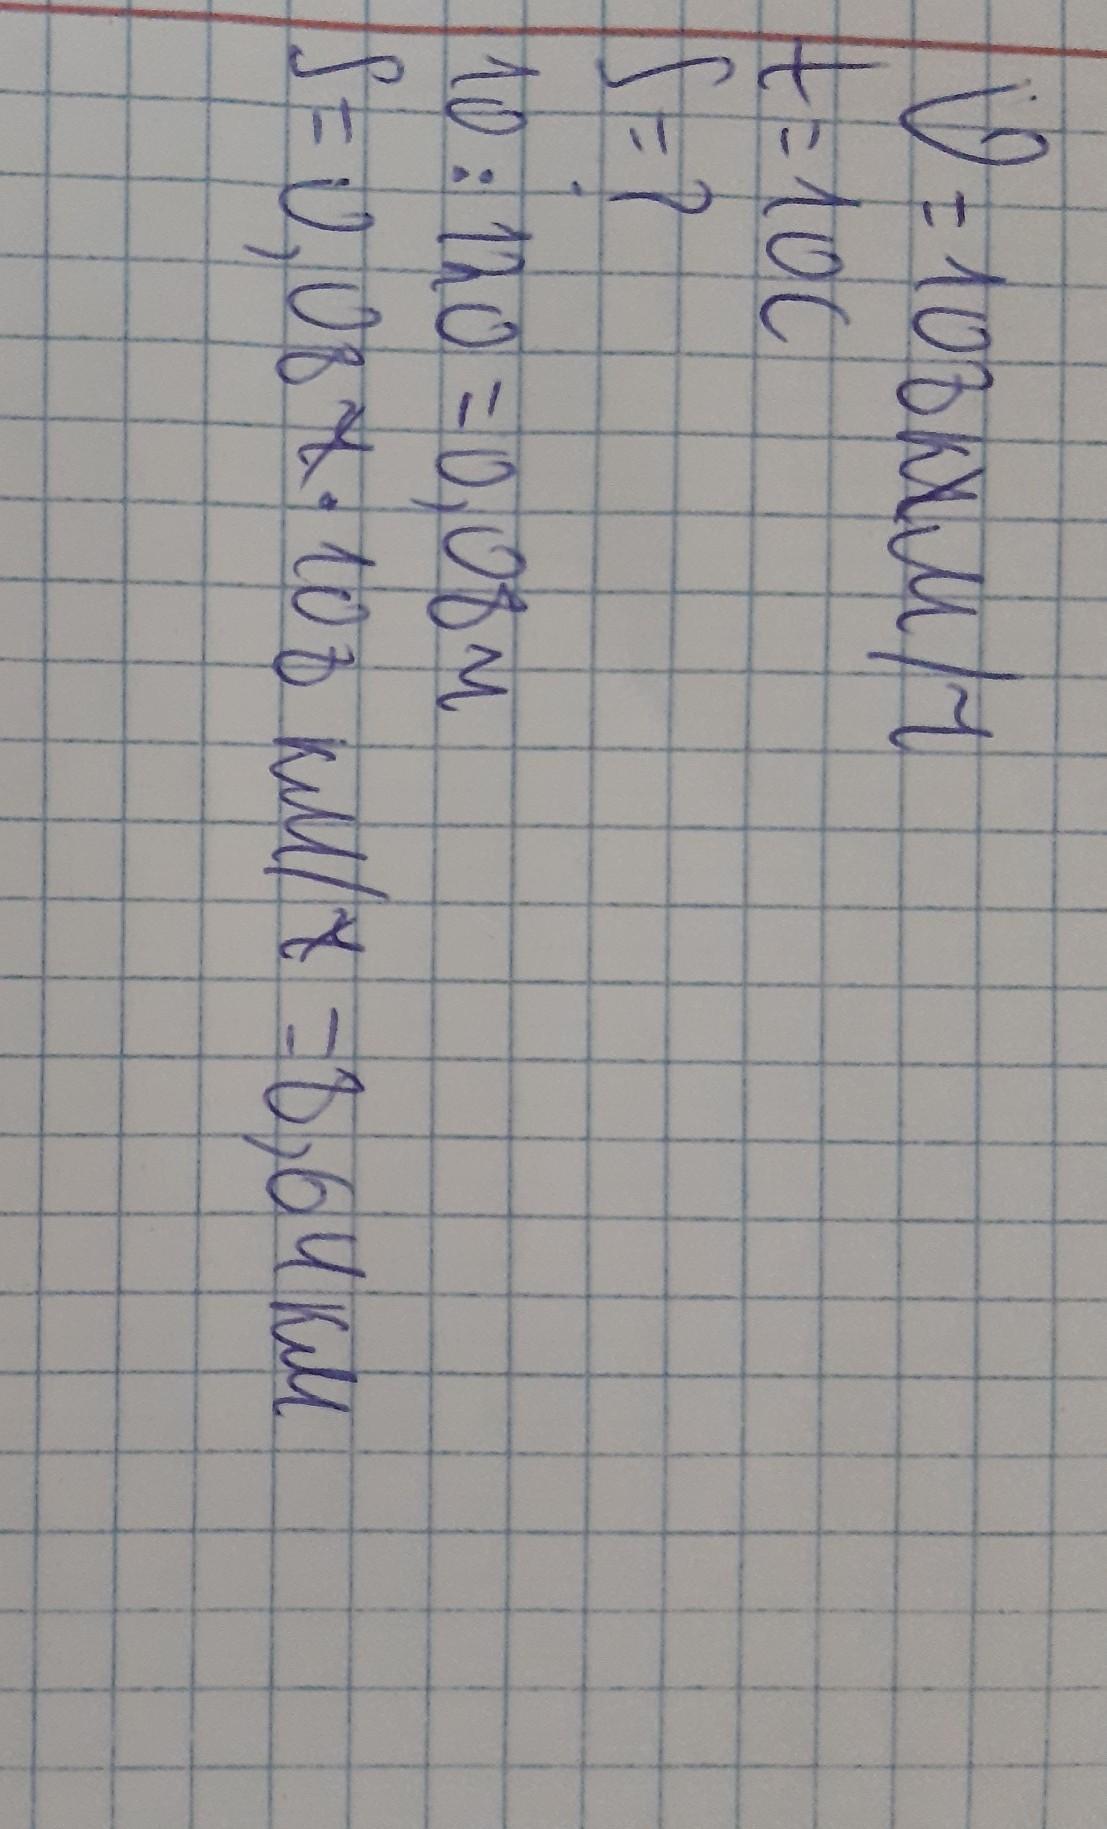 V = 108 км/ч
t = 10 с
S = ?
10 : 120 = 0,08 ч
S = 0,08 ч · 108 км/ч = 8,64 км